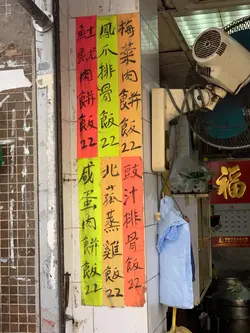 梅菜肉餅飯22
鳳爪排骨飯22
魷魚肉餅飯22
豉汁排骨飯22
北菇蒸雞飯22
咸蛋肉餅飯22
福